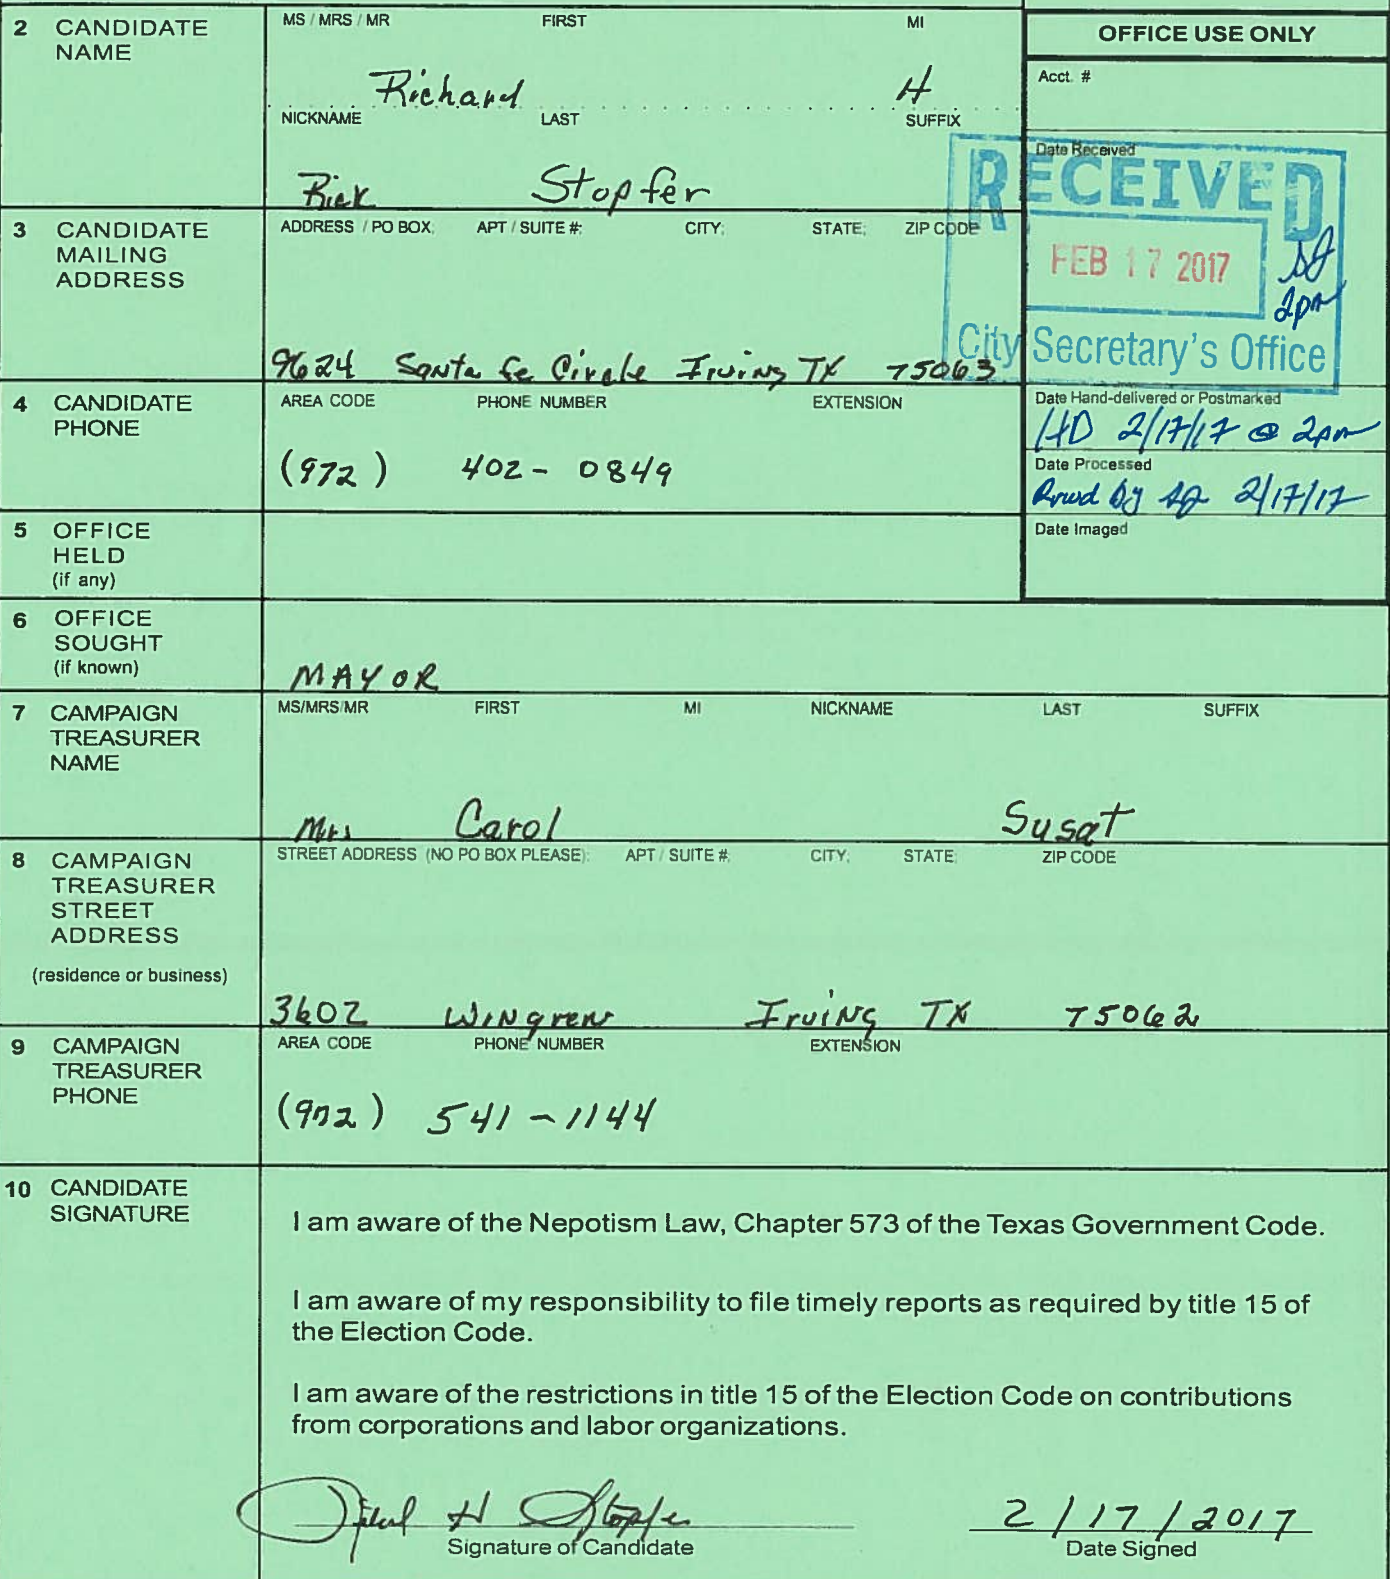 2 CANDIDATE NAME
MS / MRS / MR FIRST MI
Richard H
NICKNAME LAST SUFFIX
Rick Stopfer
OFFICE USE ONLY
Acct. #
Date Received
RECEIVED
FEB 17 2017
2pm
City Secretary's Office
3 CANDIDATE MAILING ADDRESS
ADDRESS / PO BOX; APT / SUITE #; CITY; STATE; ZIP CODE
9624 Santa Fe Circle Irving TX 75063
Date Hand-delivered or Postmarked
HD 2/17/17 @ 2pm
4 CANDIDATE PHONE
AREA CODE PHONE NUMBER EXTENSION
(972) 402-0849
Date Processed
by 2/17/17
Date Imaged
5 OFFICE HELD
(if any)
6 OFFICE SOUGHT
(if known)
MAYOR
7 CAMPAIGN TREASURER NAME
MS/MRS/MR FIRST MI NICKNAME LAST SUFFIX
Mrs Carol Susat
8 CAMPAIGN TREASURER STREET ADDRESS
(residence or business)
STREET ADDRESS (NO PO BOX PLEASE); APT / SUITE #; CITY; STATE; ZIP CODE
3602 Wingren Irving TX 75062
9 CAMPAIGN TREASURER PHONE
AREA CODE PHONE NUMBER EXTENSION
(972) 541-1144
10 CANDIDATE SIGNATURE
I am aware of the Nepotism Law, Chapter 573 of the Texas Government Code.
I am aware of my responsibility to file timely reports as required by title 15 of
the Election Code.
I am aware of the restrictions in title 15 of the Election Code on contributions
from corporations and labor organizations.
H Stopfer
2/17/2017
Signature of Candidate
Date Signed